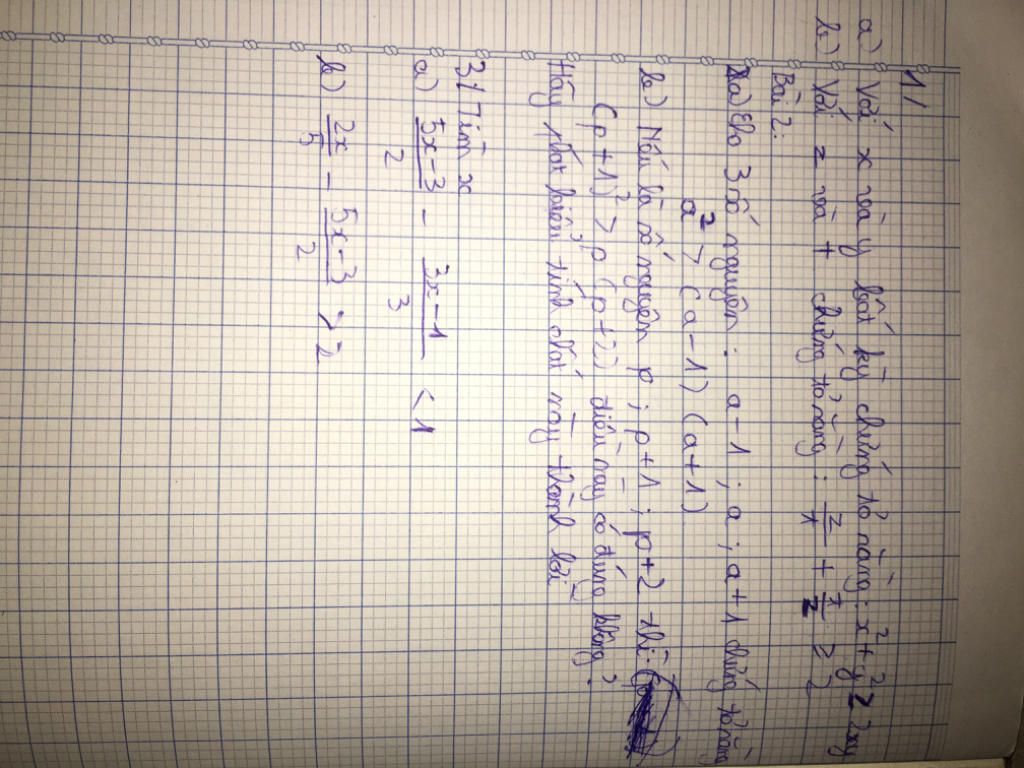 1/
a) Với x và y bất kỳ chứng tỏ rằng: x² + y² ≥ 2xy
b) Với z và t chứng tỏ rằng: z/t + t/z ≥ 2
Bài 2:
a) Cho 3 số nguyên: a-1; a; a+1 chứng tỏ rằng
a² > (a-1)(a+1)
b) Nếu là số nguyên p; p+1; p+2 thì:
(p+1)² > p(p+2) điều này có đúng không?
Hãy phát biểu tính chất này thành lời
3/ Tìm x
a) (5x-3)/2 - (3x-1)/3 < 1
b) 2x/5 - (5x-3)/2 > 2